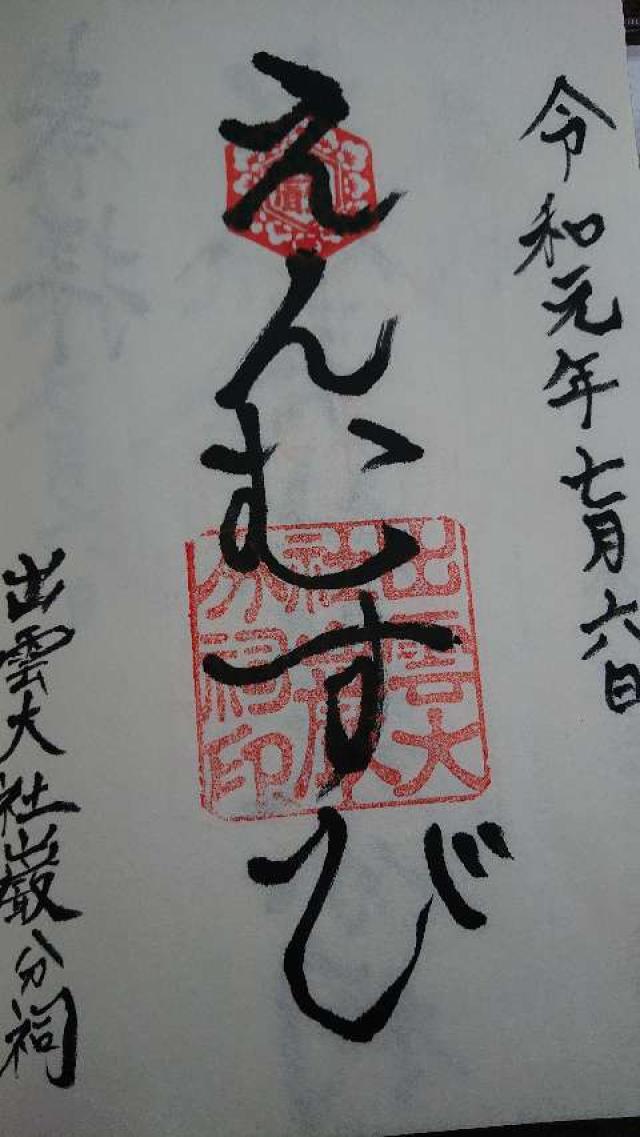 令和元年七月六日
えんむすび
出雲大社巌分祠印
出雲大社巌分祠